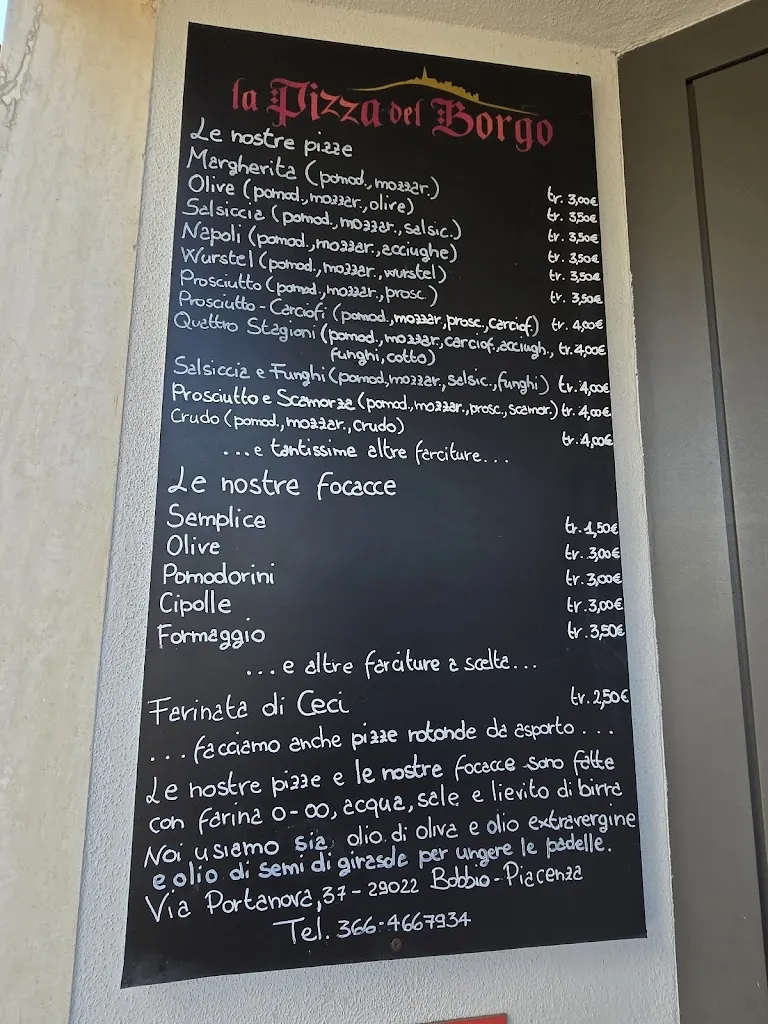 la Pizza del Borgo
Le nostre pizze
Margherita (pomod., mozzar.) tr. 3,00€
Olive (pomod., mozzar., olive) tr. 3,50€
Salsiccia (pomod., mozzar., salsic.) tr. 3,50€
Napoli (pomod., mozzar., acciughe) tr. 3,50€
Wurstel (pomod., mozzar., wurstel) tr. 3,50€
Prosciutto (pomod., mozzar., prosc.) tr. 3,50€
Prosciutto-Carciofi (pomod., mozzar, prosc., carciof.) tr. 4,00€
Quattro Stagioni (pomod., mozzar., carciof., acciugh., tr. 4,00€
funghi, cotto)
Salsiccia e Funghi (pomod, mozzar., salsic., funghi) tr. 4,00€
Prosciutto e Scamorza (pomod., mozzar., prosc., scamor.) tr. 4,00€
Crudo (pomod., mozzar., crudo) tr. 4,00€
...e tantissime altre farciture...
Le nostre focacce
Semplice tr. 1,50€
Olive tr. 3,00€
Pomodorini tr. 3,00€
Cipolle tr. 3,00€
Formaggio tr. 3,50€
...e altre farciture a scelta...
Farinata di Ceci tr. 2,50€
...facciamo anche pizze rotonde da asporto...
Le nostre pizze e le nostre focacce sono fatte
con farina 0-00, acqua, sale e lievito di birra
Noi usiamo sia olio di oliva e olio extravergine
e olio di semi di girasole per ungere le padelle.
Via Portanova, 37 - 29022 Bobbio - Piacenza
Tel. 366-4667934